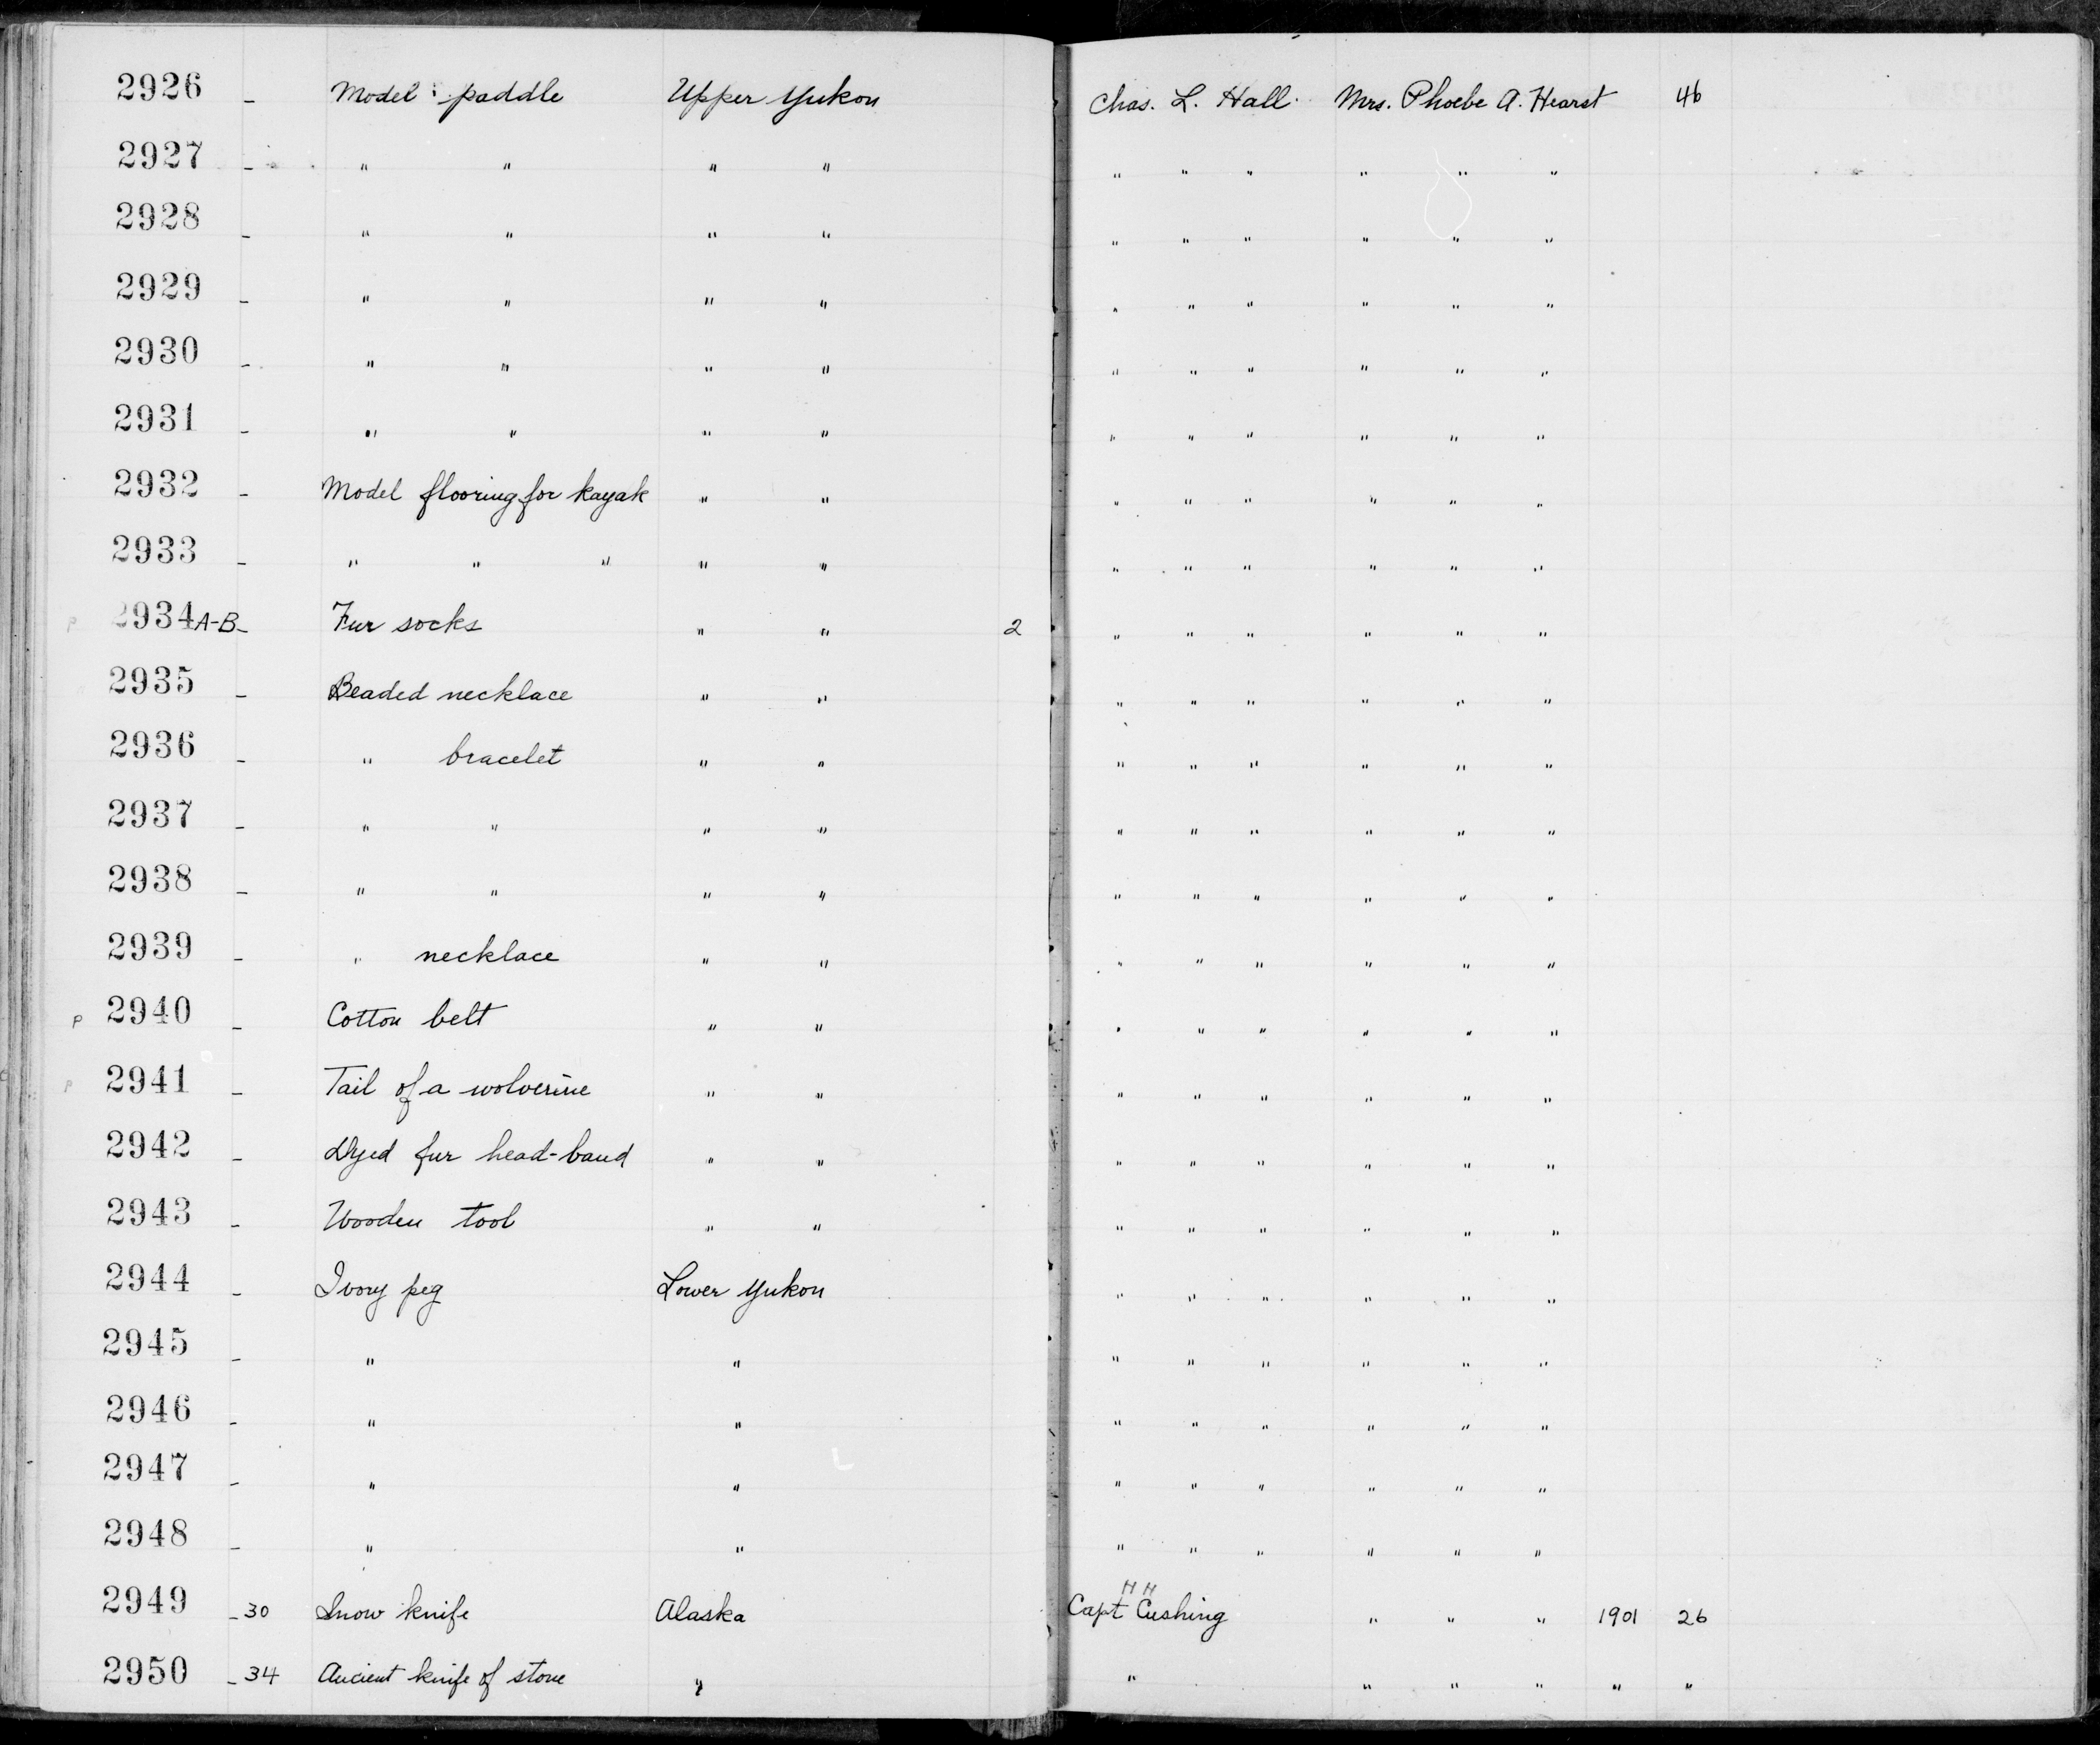 2926 - Model paddle Upper Yukon Chas. L. Hall. Mrs. Phoebe A. Hearst 46
2927 - " " " " " " " " " "
2928 - " " " " " " " " " "
2929 - " " " " " " " " " "
2930 - " " " " " " " " " "
2931 - " " " " " " " " " "
2932 - Model flooring for kayak " " " " " " " "
2933 - " " " " " " " " " " "
P 2934 A-B - Fur socks " " 2 " " " " " "
2935 - Beaded necklace " " " " " " " "
2936 - " bracelet " " " " " " " "
2937 - " " " " " " " " " "
2938 - " " " " " " " " " "
2939 - " necklace " " " " " " " "
P 2940 - Cotton belt " " " " " " " "
P 2941 - Tail of a wolverine " " " " " " " "
2942 - Dyed fur head-band " " " " " " " "
2943 - Wooden tool " " " " " " " "
2944 - Ivory peg Lower Yukon " " " " " "
2945 - " " " " " " " "
2946 - " " " " " " " "
2947 - " " " " " " " "
2948 - " " " " " " " "
2949 - 30 Snow knife Alaska Capt H H Cushing " " " 1901 26
2950 - 34 Ancient knife of stone " " " " " " "